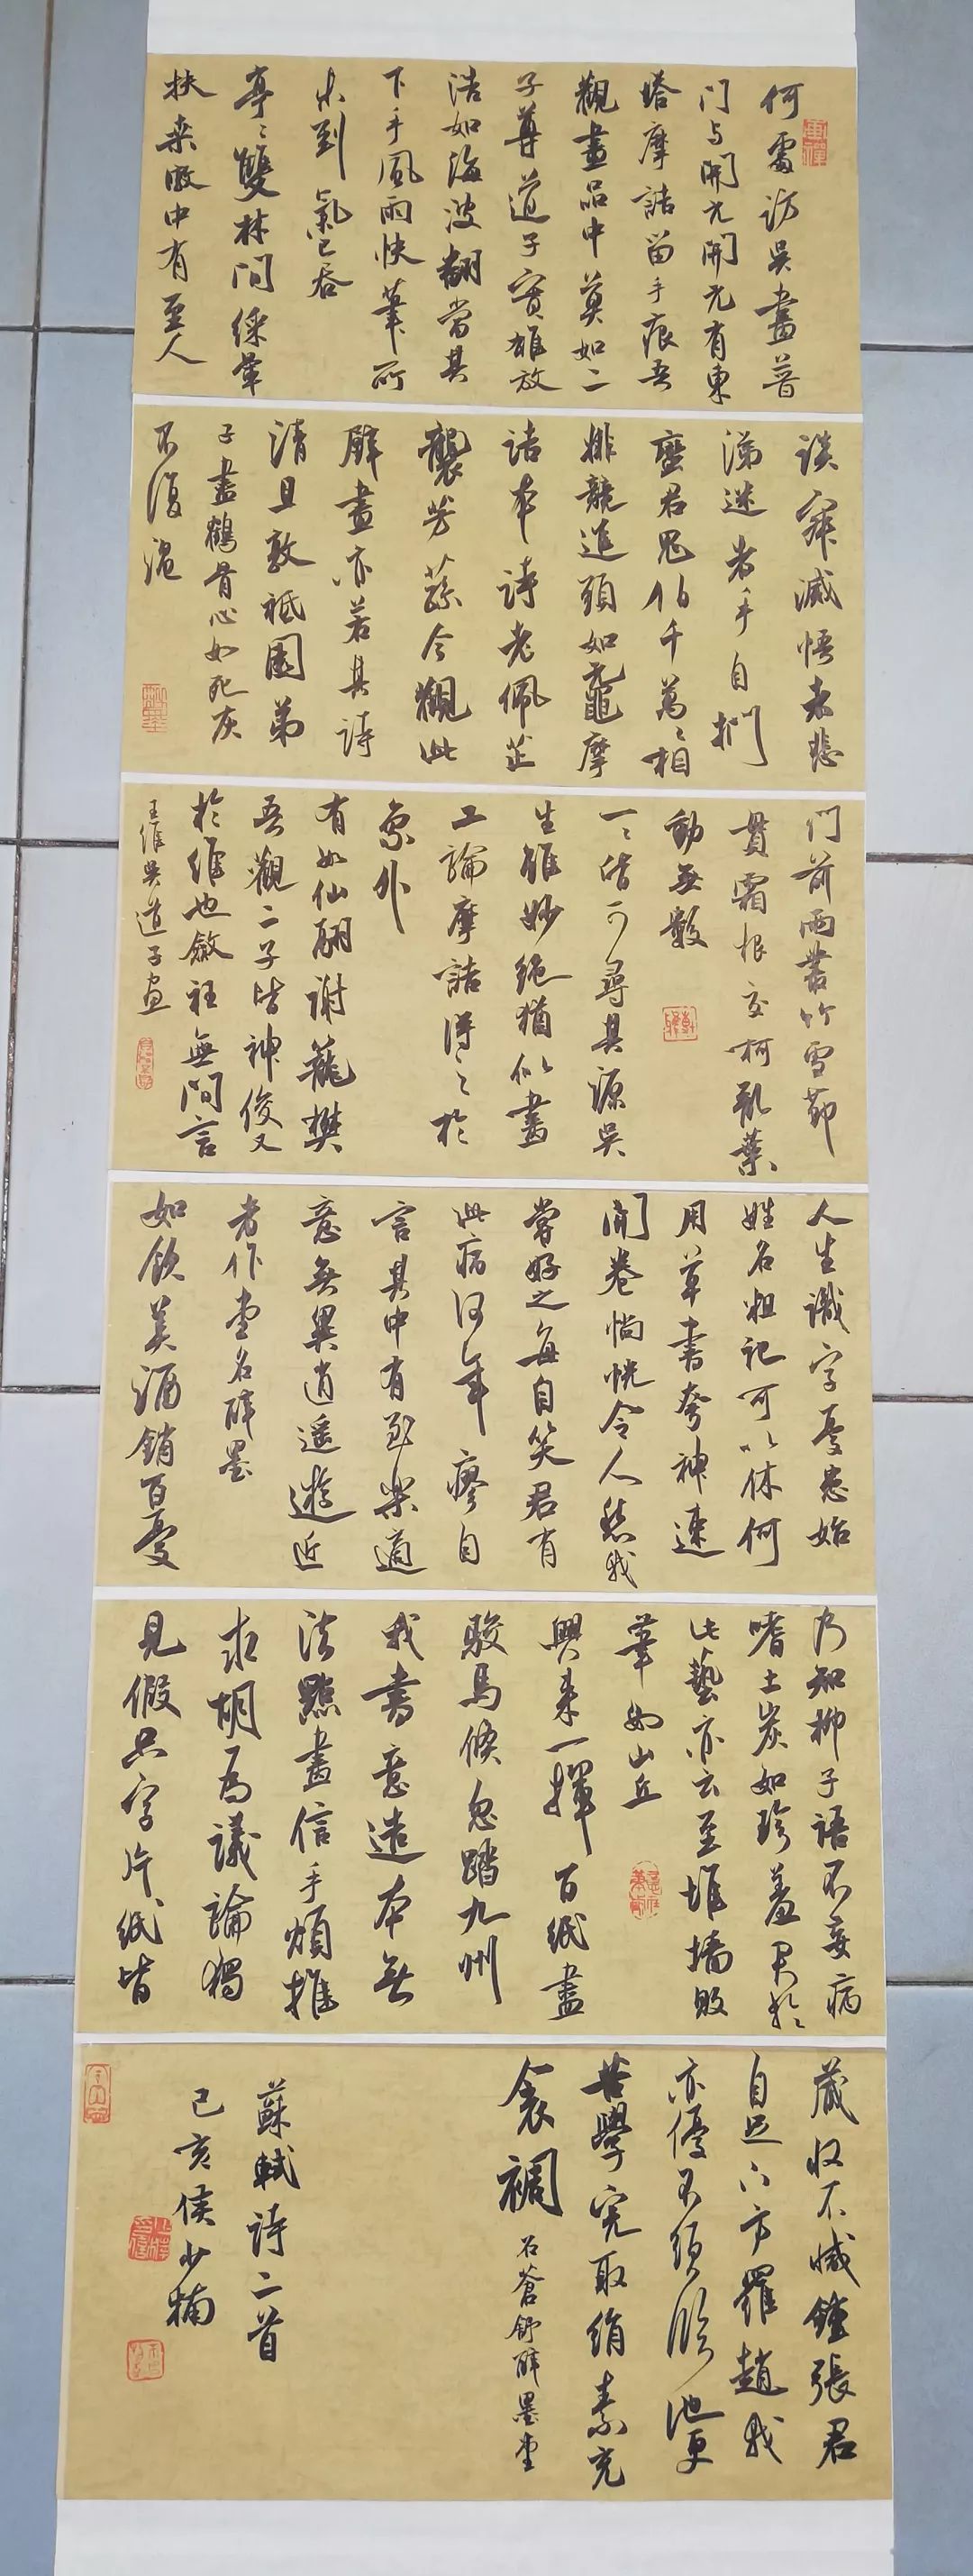 何處訪吳畫普
门与開元開元有東
塔摩詰留手痕吾
觀畫品中莫如二
子尊道子實雄放
浩如海波翻當其
下手風雨快筆所
未到氣已吞
亭亭雙林間綵暈
扶桑暾中有至人
談寂滅悟者悲
涕迷者手自捫
蠻君鬼伯千萬萬相
排競進頭如黿摩
詰本詩老佩芷
襲芳蓀今觀此
壁畫亦若其詩
清且敦祗園弟
子盡鶴骨心如死灰
不復溫
門前兩叢竹雪節
貫霜根交柯亂葉
動無數
一一皆可尋其源吳
生雖妙絕猶以畫
工論摩詰得之於
象外
有如仙翮謝籠樊
吾觀二子皆神俊又
於維也斂衽無間言
王維吳道子画
人生識字憂患始
姓名粗記可以休何
用草書夸神速
開卷惝怳令人愁我
嘗好之每自笑君有
此病何年瘳自
言其中有至樂適
意無異逍遙遊近
者作堂名醉墨
如飲美酒銷百憂
乃知柳子語不妄病
嗜土炭如珍羞君於
此藝亦云至堆墻敗
筆如山丘
興來一揮百紙盡
駿馬倏忽踏九州
我書意造本無
法點畫信手煩推
求胡為議論獨
見假只字片紙皆
藏收不減鍾張君
自足下方羅趙我
亦優不須臨池更
苦學完取絹素充
衾裯
石蒼舒醉墨堂
蘇軾詩二首
己亥侯少楠